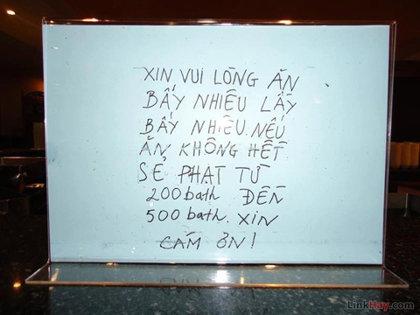 XIN VUI LÒNG ĂN
BẤY NHIÊU LẤY
BẤY NHIÊU. NẾU
ĂN KHÔNG HẾT
SẺ PHẠT TỪ
200bath ĐẾN
500bath. XIN
CÁM ƠN!
LinkHay.com